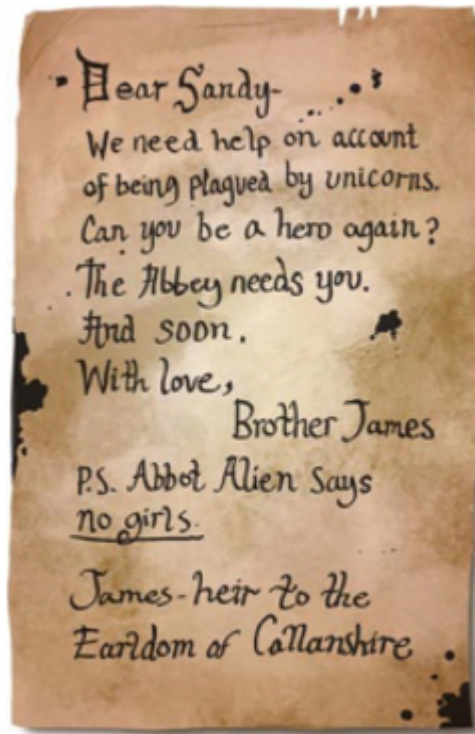 Dear Sandy-
We need help on account
of being plagued by unicorns.
Can you be a hero again?
The Abbey needs you.
And soon.
With love,
Brother James
P.S. Abbot Alien says
no girls.
James-heir to the
Earldom of Callanshire